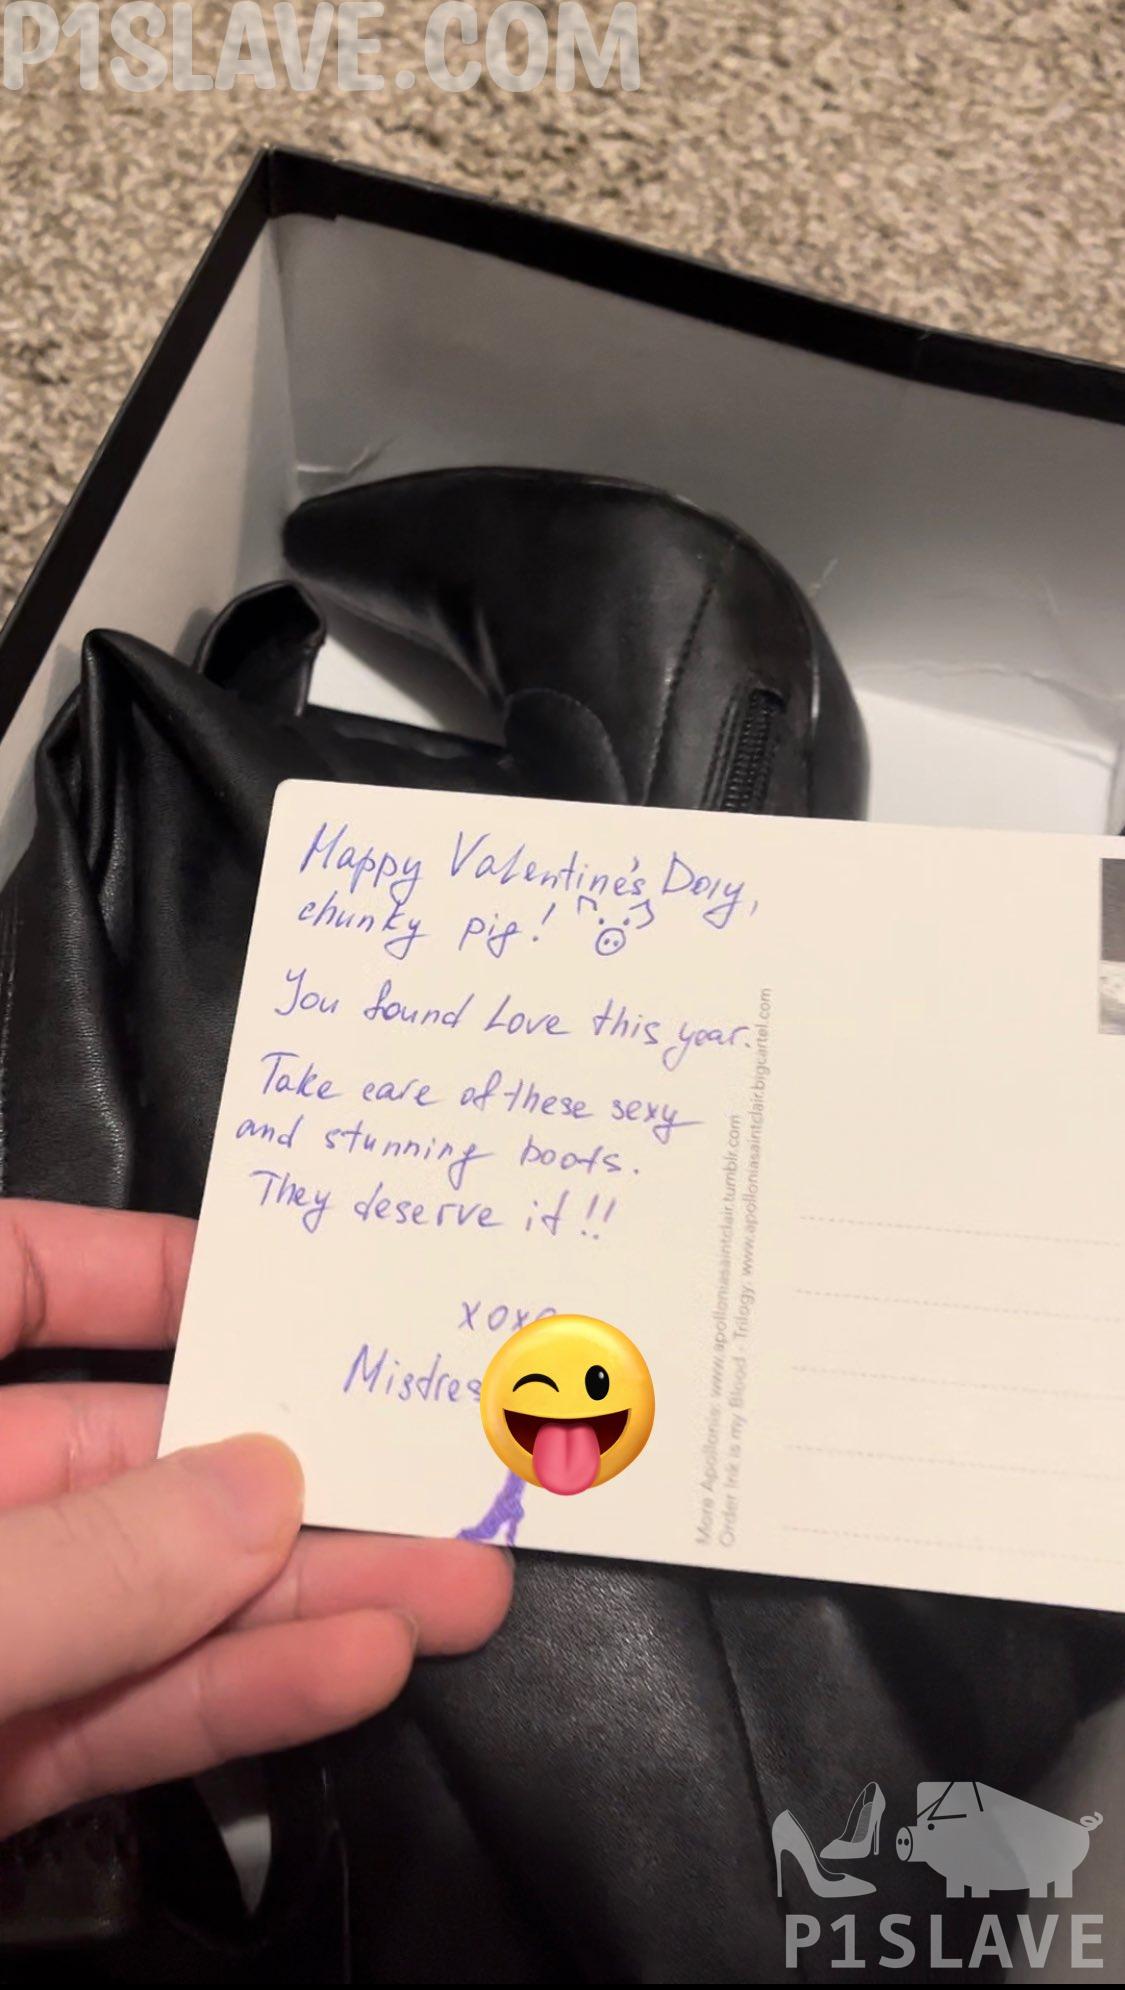 P1SLAVE.COM
Happy Valentine's Day,
chunky pig!
You found Love this year.
Take care of these sexy
and stunning boots.
They deserve it!!
xoxo
Mistres
More Apollonia: www.apolloniasaintclair.tumblr.com
Order Ink is my Blood - Trilogy: www.apolloniasaintclair.bigcartel.com
P1SLAVE